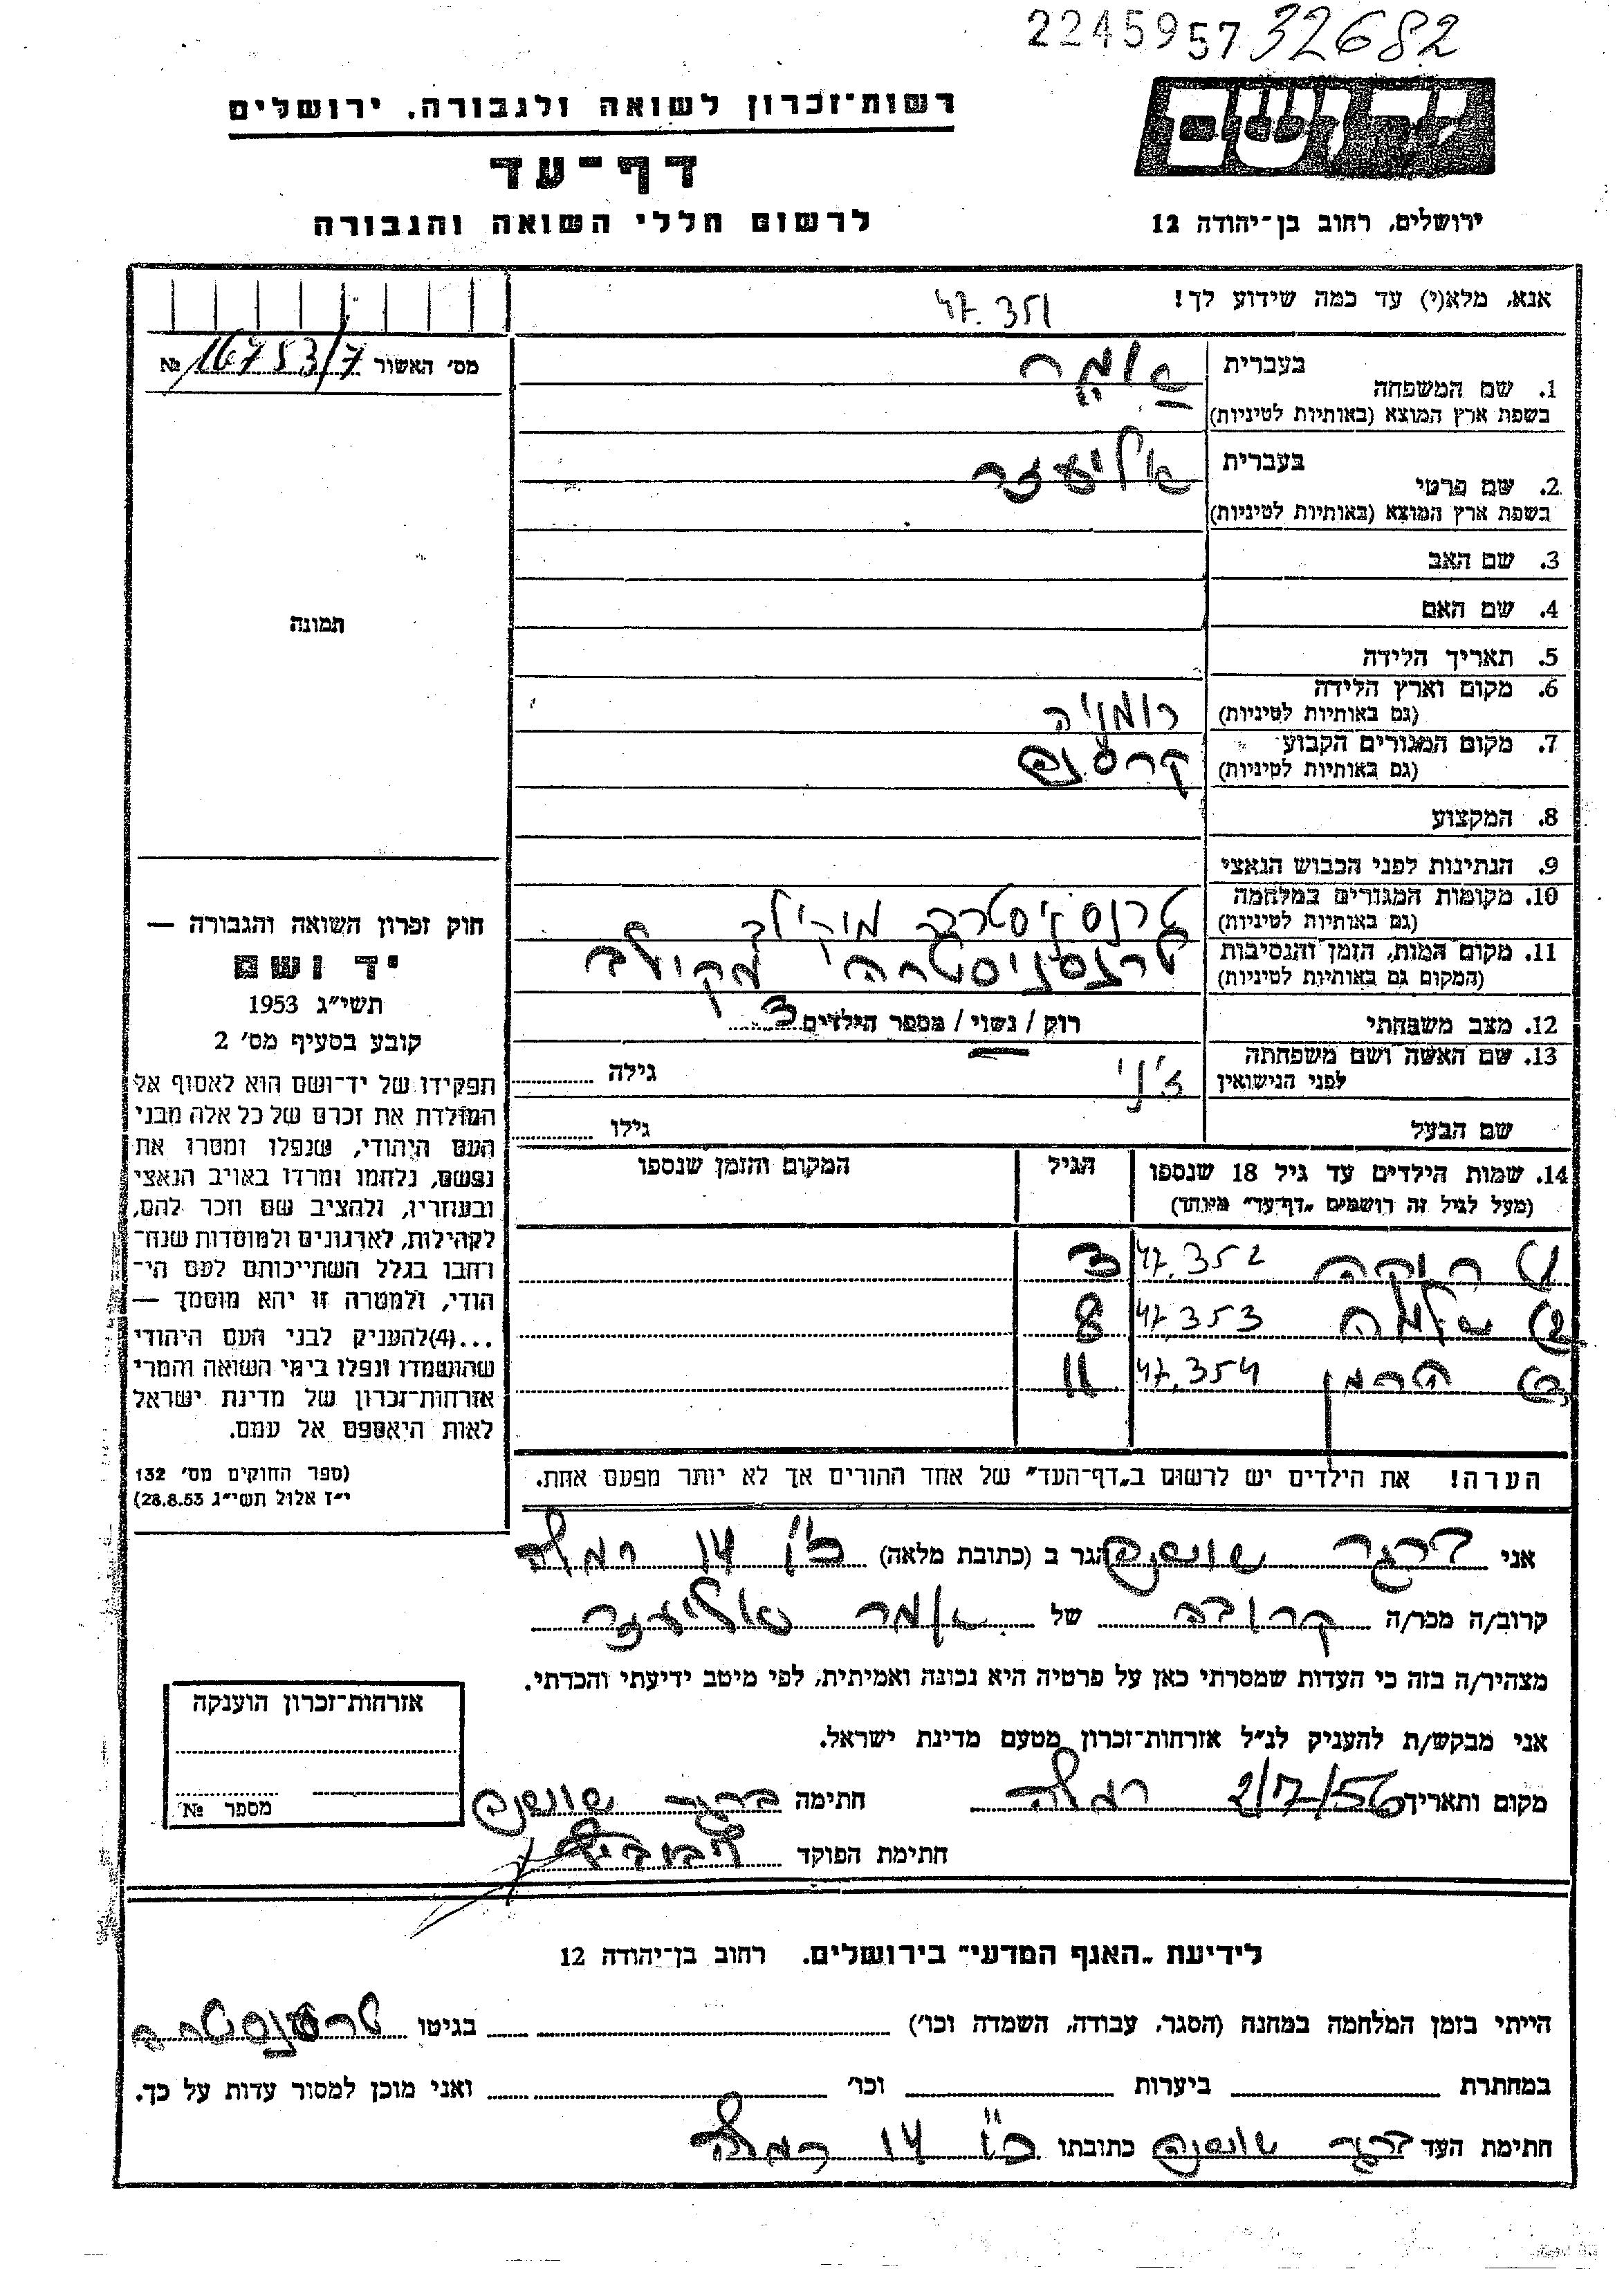 2245957 32682
רשות־זכרון לשואה ולגבורה. ירושלים
יד ושם
דף־עד
לרשום חללי השואה והגבורה
ירושלים, רחוב בן־יהודה 12
אנא, מלא(י) עד כמה שידוע לך!
47.351
מס׳ האשור 16753/7 №
בעברית
1. שם המשפחה
בשפת ארץ המוצא (באותיות לטיניות)
בעברית אליעזר
2. שם פרטי
בשפת ארץ המוצא (באותיות לטיניות)
3. שם האב
4. שם האם
תמונה
5. תאריך הלידה
6. מקום וארץ הלידה רומניה
(גם באותיות לטיניות)
7. מקום המגורים הקבוע
(גם באותיות לטיניות)
8. המקצוע
9. הנתינות לפני הכבוש הנאצי
10. מקומות המגורים במלחמה
(גם באותיות לטיניות)
11. מקום המות, הזמן והנסיבות
(המקום גם באותיות לטיניות)
12. מצב משפחתי רוק / נשוי / מספר הילדים 3
13. שם האשה ושם משפחתה ז׳ני גילה
לפני הנישואין
שם הבעל גילו
14. שמות הילדים עד גיל 18 שנספו הגיל המקום והזמן שנספו
(מעל לגיל זה רושמים „דף־עד״ מיוחד)
1) ריקה 47.352 3
2) שלמה 47.353 8
3) הרמן 47.354 11
הערה! את הילדים יש לרשום ב„דף־העד״ של אחד ההורים אך לא יותר מפעם אחת.
חוק זכרון השואה והגבורה —
יד ושם
תשי״ג 1953
קובע בסעיף מס׳ 2
תפקידו של יד־ושם הוא לאסוף אל
המולדת את זכרם של כל אלה מבני
העם היהודי, שנפלו ומסרו את
נפשם, נלחמו ומרדו באויב הנאצי
ובעוזריו, ולהציב שם וזכר להם,
לקהילות, לארגונים ולמוסדות שנח־
רחבו בגלל השתייכותם לעם הי־
הודי, ולמטרה זו יהא מוסמך —
...(4)להעניק לבני העם היהודי
שהושמדו ונפלו בימי השואה והמרי
אזרחות־זכרון של מדינת ישראל
לאות היאספם אל עמם.
(ספר החוקים מס׳ 132
י״ז אלול תשי״ג 28.8.53)
אני שושנה הגר ב (כתובת מלאה) 14 רמלה
קרוב/ה מכר/ה קרובה של אליעזר
מצהיר/ה בזה כי העדות שמסרתי כאן על פרטיה היא נכונה ואמיתית, לפי מיטב ידיעתי והכרתי.
אני מבקש/ת להעניק לנ״ל אזרחות־זכרון מטעם מדינת ישראל.
מקום ותאריך 2/7/56 רמלה חתימה שושנה
חתימת הפוקד
אזרחות־זכרון הוענקה
מספר №
לידיעת „האגף המדעי״ בירושלים. רחוב בן־יהודה 12
הייתי בזמן המלחמה במחנה (הסגר, עבודה, השמדה וכו׳) בגיטו
במחתרת ביערות וכו׳ ואני מוכן למסור עדות על כך.
חתימת העד שושנה כתובתו 14 רמלה